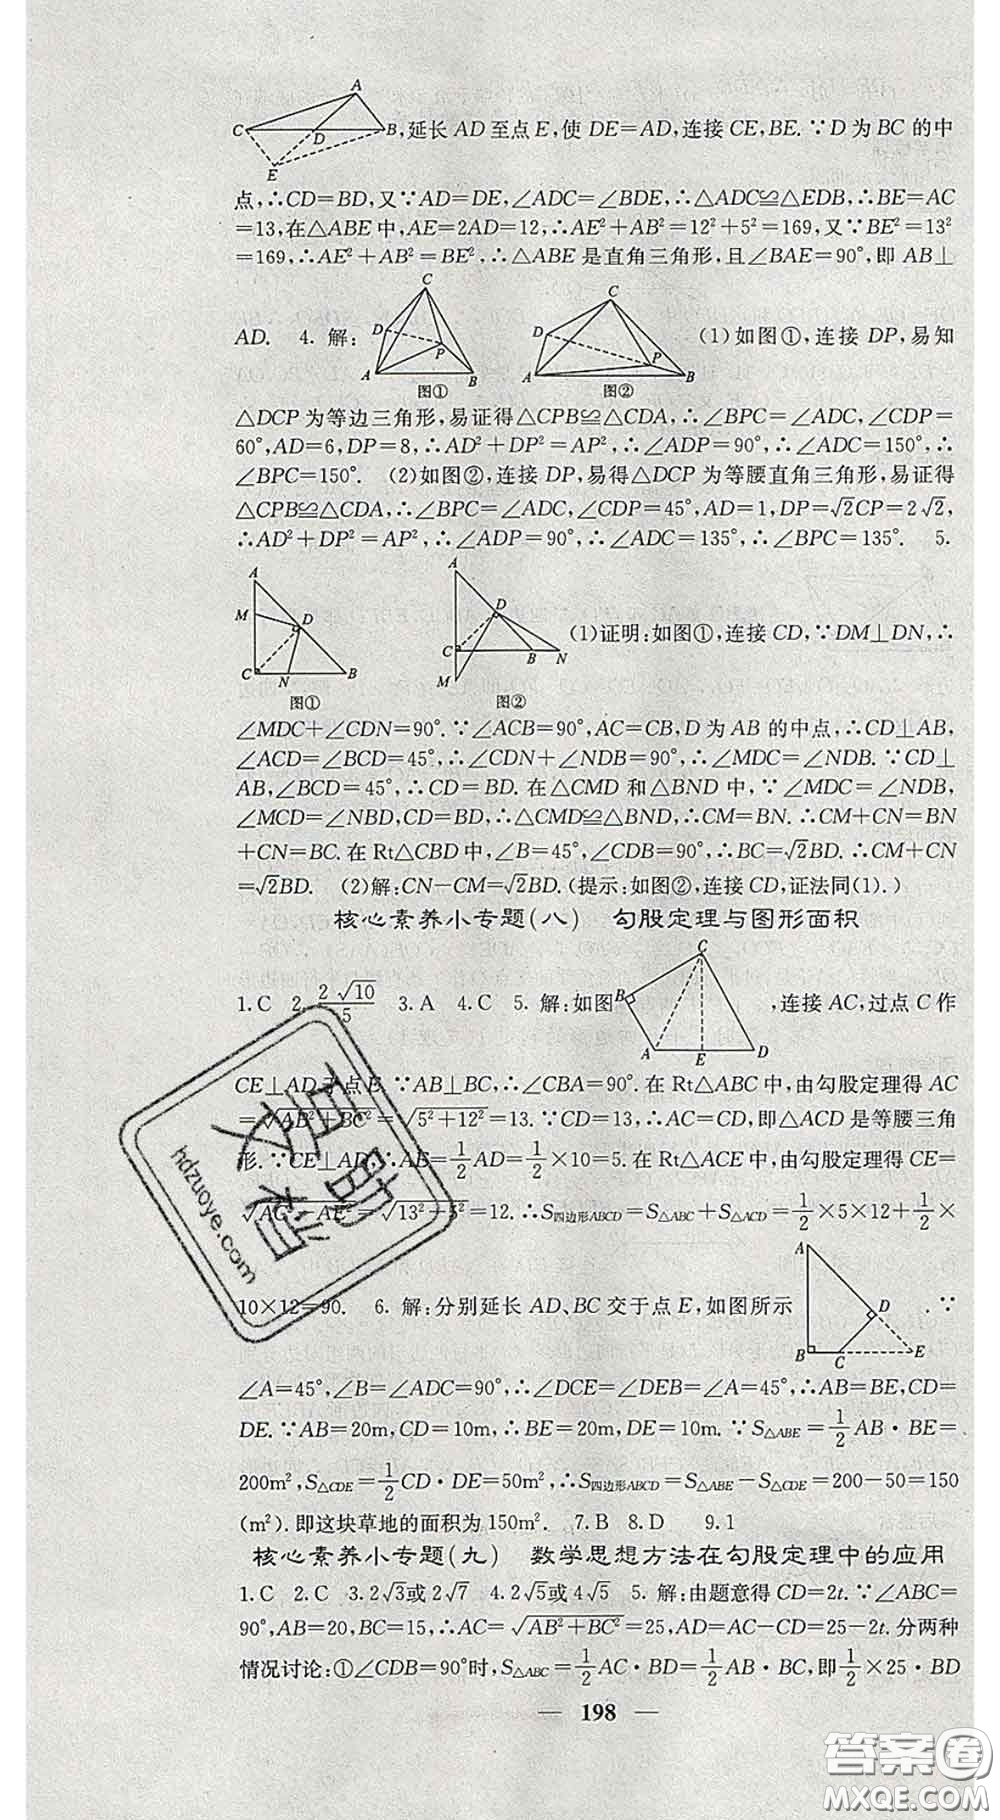 A
C D B ,延长 AD 至点 E,使 DE=AD,连接 CE,BE.∵D 为 BC 的中
E
点,∴CD=BD,又∵AD=DE,∠ADC=∠BDE,∴△ADC≌△EDB,∴BE=AC
=13,在△ABE 中,AE=2AD=12,∴AE²+AB²=12²+5²=169,又∵BE²=13²
=169,∴AE²+AB²=BE²,∴△ABE 是直角三角形,且∠BAE=90°,即 AB⊥
AD. 4. 解: (1)如图①,连接 DP,易知
C D P A B
图①
C D P A B
图②
△DCP 为等边三角形,易证得△CPB≌△CDA,∴∠BPC=∠ADC,∠CDP=
60°,AD=6,DP=8,∴AD²+DP²=AP²,∴∠ADP=90°,∴∠ADC=150°,∴
∠BPC=150°. (2)如图②,连接 DP,易得△DCP 为等腰直角三角形,易证得
△CPB≌△CDA,∴∠BPC=∠ADC,∠CDP=45°,AD=1,DP=√2CP=2√2,
∴AD²+DP²=AP²,∴∠ADP=90°,∴∠ADC=135°,∴∠BPC=135°. 5.
A M D C N B
图①
A D C B N M
图②
(1)证明:如图①,连接 CD,∵DM⊥DN,∴
∠MDC+∠CDN=90°.∵∠ACB=90°,AC=CB,D 为 AB 的中点,∴CD⊥AB,
∠ACD=∠BCD=45°,∴∠CDN+∠NDB=90°.∴∠MDC=∠NDB.∵CD⊥
AB,∠BCD=45°,∴CD=BD.在△CMD 和△BND 中,∵∠MDC=∠NDB,
∠MCD=∠NBD,CD=BD,∴△CMD≌△BND,∴CM=BN.∴CM+CN=BN
+CN=BC.在 Rt△CBD 中,∠B=45°,∠CDB=90°,∴BC=√2BD.∴CM+CN
=√2BD. (2)解:CN-CM=√2BD.(提示:如图②,连接 CD,证法同(1).)
核心素养小专题(八) 勾股定理与图形面积
1.C 2. 2√10/5 3.A 4.C 5. 解:如图 ,连接 AC,过点 C 作
C B A E D
CE⊥AD于点 E.∵AB⊥BC,∴∠CBA=90°.在 Rt△ABC 中,由勾股定理得 AC
=√(AB²+BC²)=√(5²+12²)=13.∵CD=13,∴AC=CD,即△ACD 是等腰三角
形.∵CE⊥AD,∴AE=1/2AD=1/2×10=5.在 Rt△ACE 中,由勾股定理得 CE=
√(AC²-AE²)=√(13²-5²)=12.∴S四边形ABCD=S△ABC+S△ACD=1/2×5×12+1/2×
10×12=90. 6. 解:分别延长 AD、BC 交于点 E,如图所示 .∵
A D B C E
∠A=45°,∠B=∠ADC=90°,∴∠DCE=∠DEB=∠A=45°,∴AB=BE,CD=
DE.∵AB=20m,CD=10m,∴BE=20m,DE=10m.∵S△ABE=1/2AB·BE=
200m²,S△CDE=1/2CD·DE=50m²,∴S四边形ABCD=S△ABE-S△CDE=200-50=150
(m²).即这块草地的面积为 150m². 7.B 8.D 9.1
核心素养小专题(九) 数学思想方法在勾股定理中的应用
1.C 2.C 3.2√3或2√7 4.2√5或4√5 5. 解:由题意得 CD=2t.∵∠ABC=
90°,AB=20,BC=15,∴AC=√(AB²+BC²)=25,AD=AC-CD=25-2t.分两种
情况讨论:①∠CDB=90°时,S△ABC=1/2AC·BD=1/2AB·BC,即1/2×25·BD
— 198 —
hdzuoye.com
答案卷
MXQE.COM